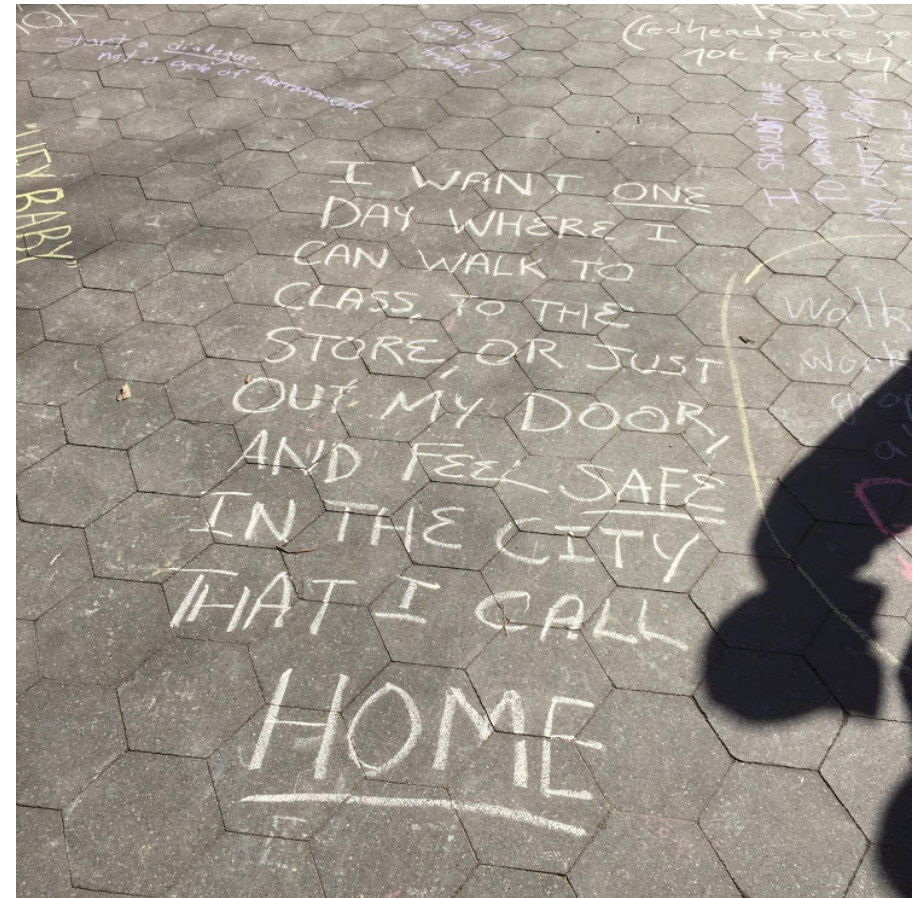 start a dialogue,
not a cycle of harassment
(redheads are
not fetish
"HEY BABY"
I SHOULDN'T HAVE
TO WORRY ABOUT
I WANT ONE
DAY WHERE I
CAN WALK TO
CLASS, TO THE
STORE, OR JUST
OUT MY DOOR,
AND FEEL SAFE
IN THE CITY
THAT I CALL
HOME
Walk
work